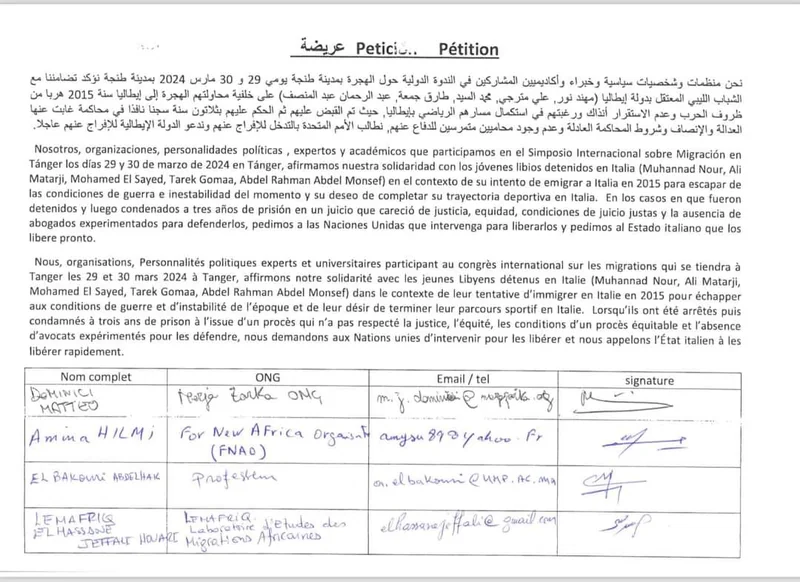 عريضة Petici... Pétition
نحن منظمات وشخصيات سياسية وخبراء وأكاديميين المشاركين في الندوة الدولية حول الهجرة بمدينة طنجة يومي 29 و 30 مارس 2024 بمدينة طنجة نؤكد تضامننا مع
الشباب الليبي المعتقل بدولة إيطاليا (مهند نور, علي مترجي, محمد السيد, طارق جمعة, عبد الرحمان عبد المنصف) على خلفية محاولتهم الهجرة إلى إيطاليا سنة 2015 هربا من
ظروف الحرب وعدم الاستقرار آنذاك ورغبتهم في استكمال مسارهم الرياضي بإيطاليا, حيث تم القبض عليهم ثم الحكم عليهم بثلاثون سنة سجنا نافذا في محاكمة غابت عنها
العدالة والإنصاف وشروط المحاكمة العادلة وعدم وجود محاميين متمرسين للدفاع عنهم, نطالب الأمم المتحدة بالتدخل للإفراج عنهم وندعو الدولة الإيطالية للإفراج عنهم عاجلا.
Nosotros, organizaciones, personalidades políticas , expertos y académicos que participamos en el Simposio Internacional sobre Migración en
Tánger los días 29 y 30 de marzo de 2024 en Tánger, afirmamos nuestra solidaridad con los jóvenes libios detenidos en Italia (Muhannad Nour, Ali
Matarji, Mohamed El Sayed, Tarek Gomaa, Abdel Rahman Abdel Monsef) en el contexto de su intento de emigrar a Italia en 2015 para escapar de
las condiciones de guerra e inestabilidad del momento y su deseo de completar su trayectoria deportiva en Italia. En los casos en que fueron
detenidos y luego condenados a tres años de prisión en un juicio que careció de justicia, equidad, condiciones de juicio justas y la ausencia de
abogados experimentados para defenderlos, pedimos a las Naciones Unidas que intervenga para liberarlos y pedimos al Estado italiano que los
libere pronto.
Nous, organisations, Personnalités politiques experts et universitaires participant au congrès international sur les migrations qui se tiendra à
Tanger les 29 et 30 mars 2024 à Tanger, affirmons notre solidarité avec les jeunes Libyens détenus en Italie (Muhannad Nour, Ali Matarji,
Mohamed El Sayed, Tarek Gomaa, Abdel Rahman Abdel Monsef) dans le contexte de leur tentative d'immigrer en Italie en 2015 pour échapper
aux conditions de guerre et d'instabilité de l'époque et de leur désir de terminer leur parcours sportif en Italie. Lorsqu'ils ont été arrêtés puis
condamnés à trois ans de prison à l'issue d'un procès qui n'a pas respecté la justice, l'équité, les conditions d'un procès équitable et l'absence
d'avocats expérimentés pour les défendre, nous demandons aux Nations unies d'intervenir pour les libérer et nous appelons l'État italien à les
libérer rapidement.
Nom complet ONG Email / tel signature
DOMINICI
MATTEO
ONG
Amina HILMI For New Africa
(FNAO)
EL BAKOURI ABDELHAK
LEMAFRIQ LEMAFRIQ
EL HASSANE Laboratoire d'Etudes des
Migrations Africaines